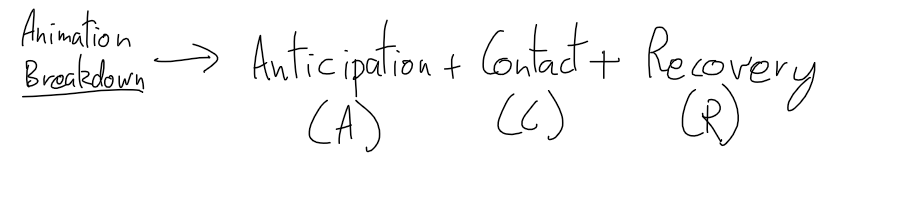 Animation
Breakdown → Anticipation + Contact + Recovery
(A) (C) (R)